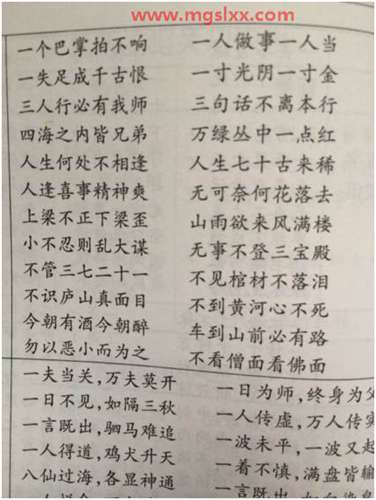 www.mgslxx.com
一个巴掌拍不响 一人做事一人当
一失足成千古恨 一寸光阴一寸金
三人行必有我师 三句话不离本行
四海之内皆兄弟 万绿丛中一点红
人生何处不相逢 人生七十古来稀
人逢喜事精神爽 无可奈何花落去
上梁不正下梁歪 山雨欲来风满楼
小不忍则乱大谋 无事不登三宝殿
不管三七二十一 不见棺材不落泪
不识庐山真面目 不到黄河心不死
今朝有酒今朝醉 车到山前必有路
勿以恶小而为之 不看僧面看佛面
一夫当关，万夫莫开 一日为师，终身为父
一日不见，如隔三秋 一人传虚，万人传实
一言既出，驷马难追 一波未平，一波又起
一人得道，鸡犬升天 一着不慎，满盘皆输
八仙过海，各显神通